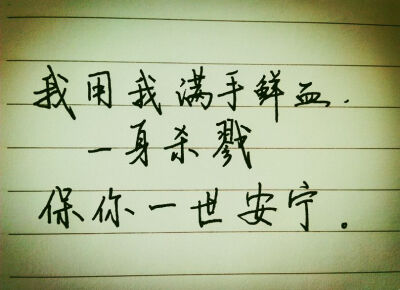 我用我满手鲜血.
一身杀戮
保你一世安宁。